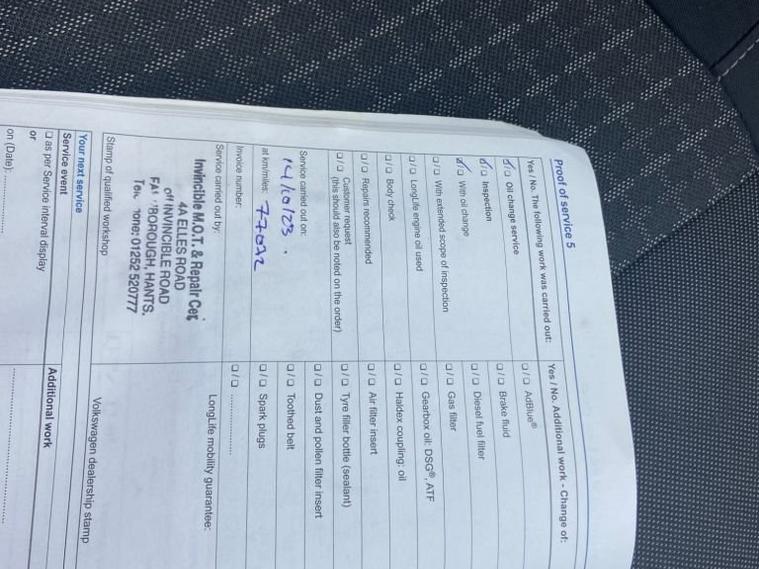 Proof of service 5
Yes / No. The following work was carried out:
☑ / ☐ Oil change service
☑ / ☐ Inspection
☑ / ☐ With oil change
☐ / ☐ With extended scope of inspection
☐ / ☐ LongLife engine oil used
☐ / ☐ Body check
☐ / ☐ Repairs recommended
☐ / ☐ Customer request
(this should also be noted on the order)
Service carried out on:
14/10/23.
at km/miles: 77012
Invoice number:
Service carried out by:
Invincible M.O.T. & Repair Cer
4A ELLES ROAD
off INVINCIBLE ROAD
BOROUGH, HANTS.
01252 520777
Stamp of qualified workshop
Yes / No. Additional work - Change of:
☐ / ☐ AdBlue®
☐ / ☐ Brake fluid
☐ / ☐ Diesel fuel filter
☐ / ☐ Gas filter
☐ / ☐ Gearbox oil: DSG®, ATF
☐ / ☐ Haldex coupling: oil
☐ / ☐ Air filter insert
☐ / ☐ Tyre filler bottle (sealant)
☐ / ☐ Dust and pollen filter insert
☐ / ☐ Toothed belt
☐ / ☐ Spark plugs
☐ / ☐ ....................
LongLife mobility guarantee:
Volkswagen dealership stamp
Your next service
Service event
☐ as per Service interval display
or
on (Date): ....................
Additional work